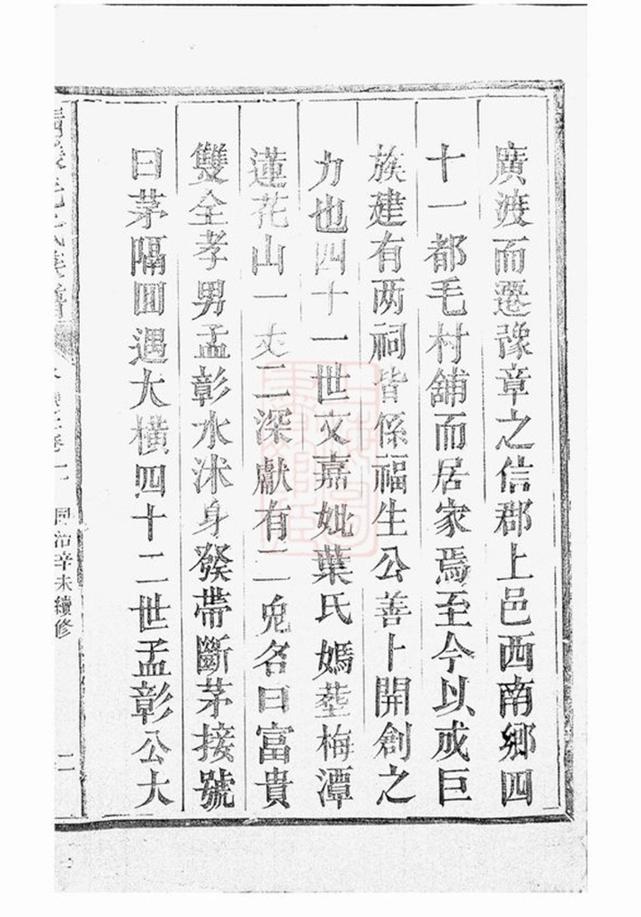 廣渡而遷豫章之信郡上邑西南鄉四
十一都毛村舖而居家焉至今以成巨
族建有两祠皆係福生公善卜開創之
力也四十一世文嘉妣葉氏媽塟梅潭
蓮花山一丈二深獻有二皃名曰富貴
雙全孝男孟彰水沭身發帶斷茅接號
曰茅隔囬遇大橫四十二世孟彰公大
毛氏族譜
同治辛未續修
二